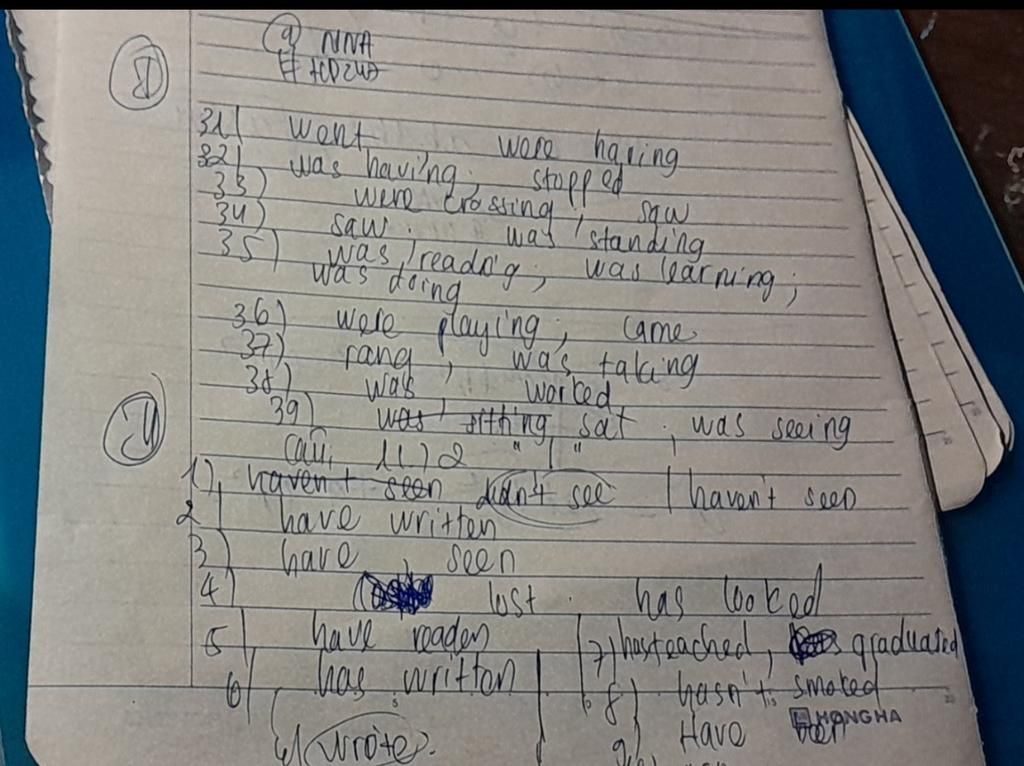 NNA
31) went were having
32) was having, stopped
33) were crossing, saw
34) saw, was standing
35) was reading, was learning;
was doing
36) were playing; came
37) rang, was taking
38) was, worked
39) was sitting sat, was seeing
1) haven't seen didn't see | haven't seen
2) have written
3) have seen
4) lost. has looked
5) have readen
7) has teached, graduated
6) has written
8) hasn't smoked
HONGHA
wrote.
9) Have